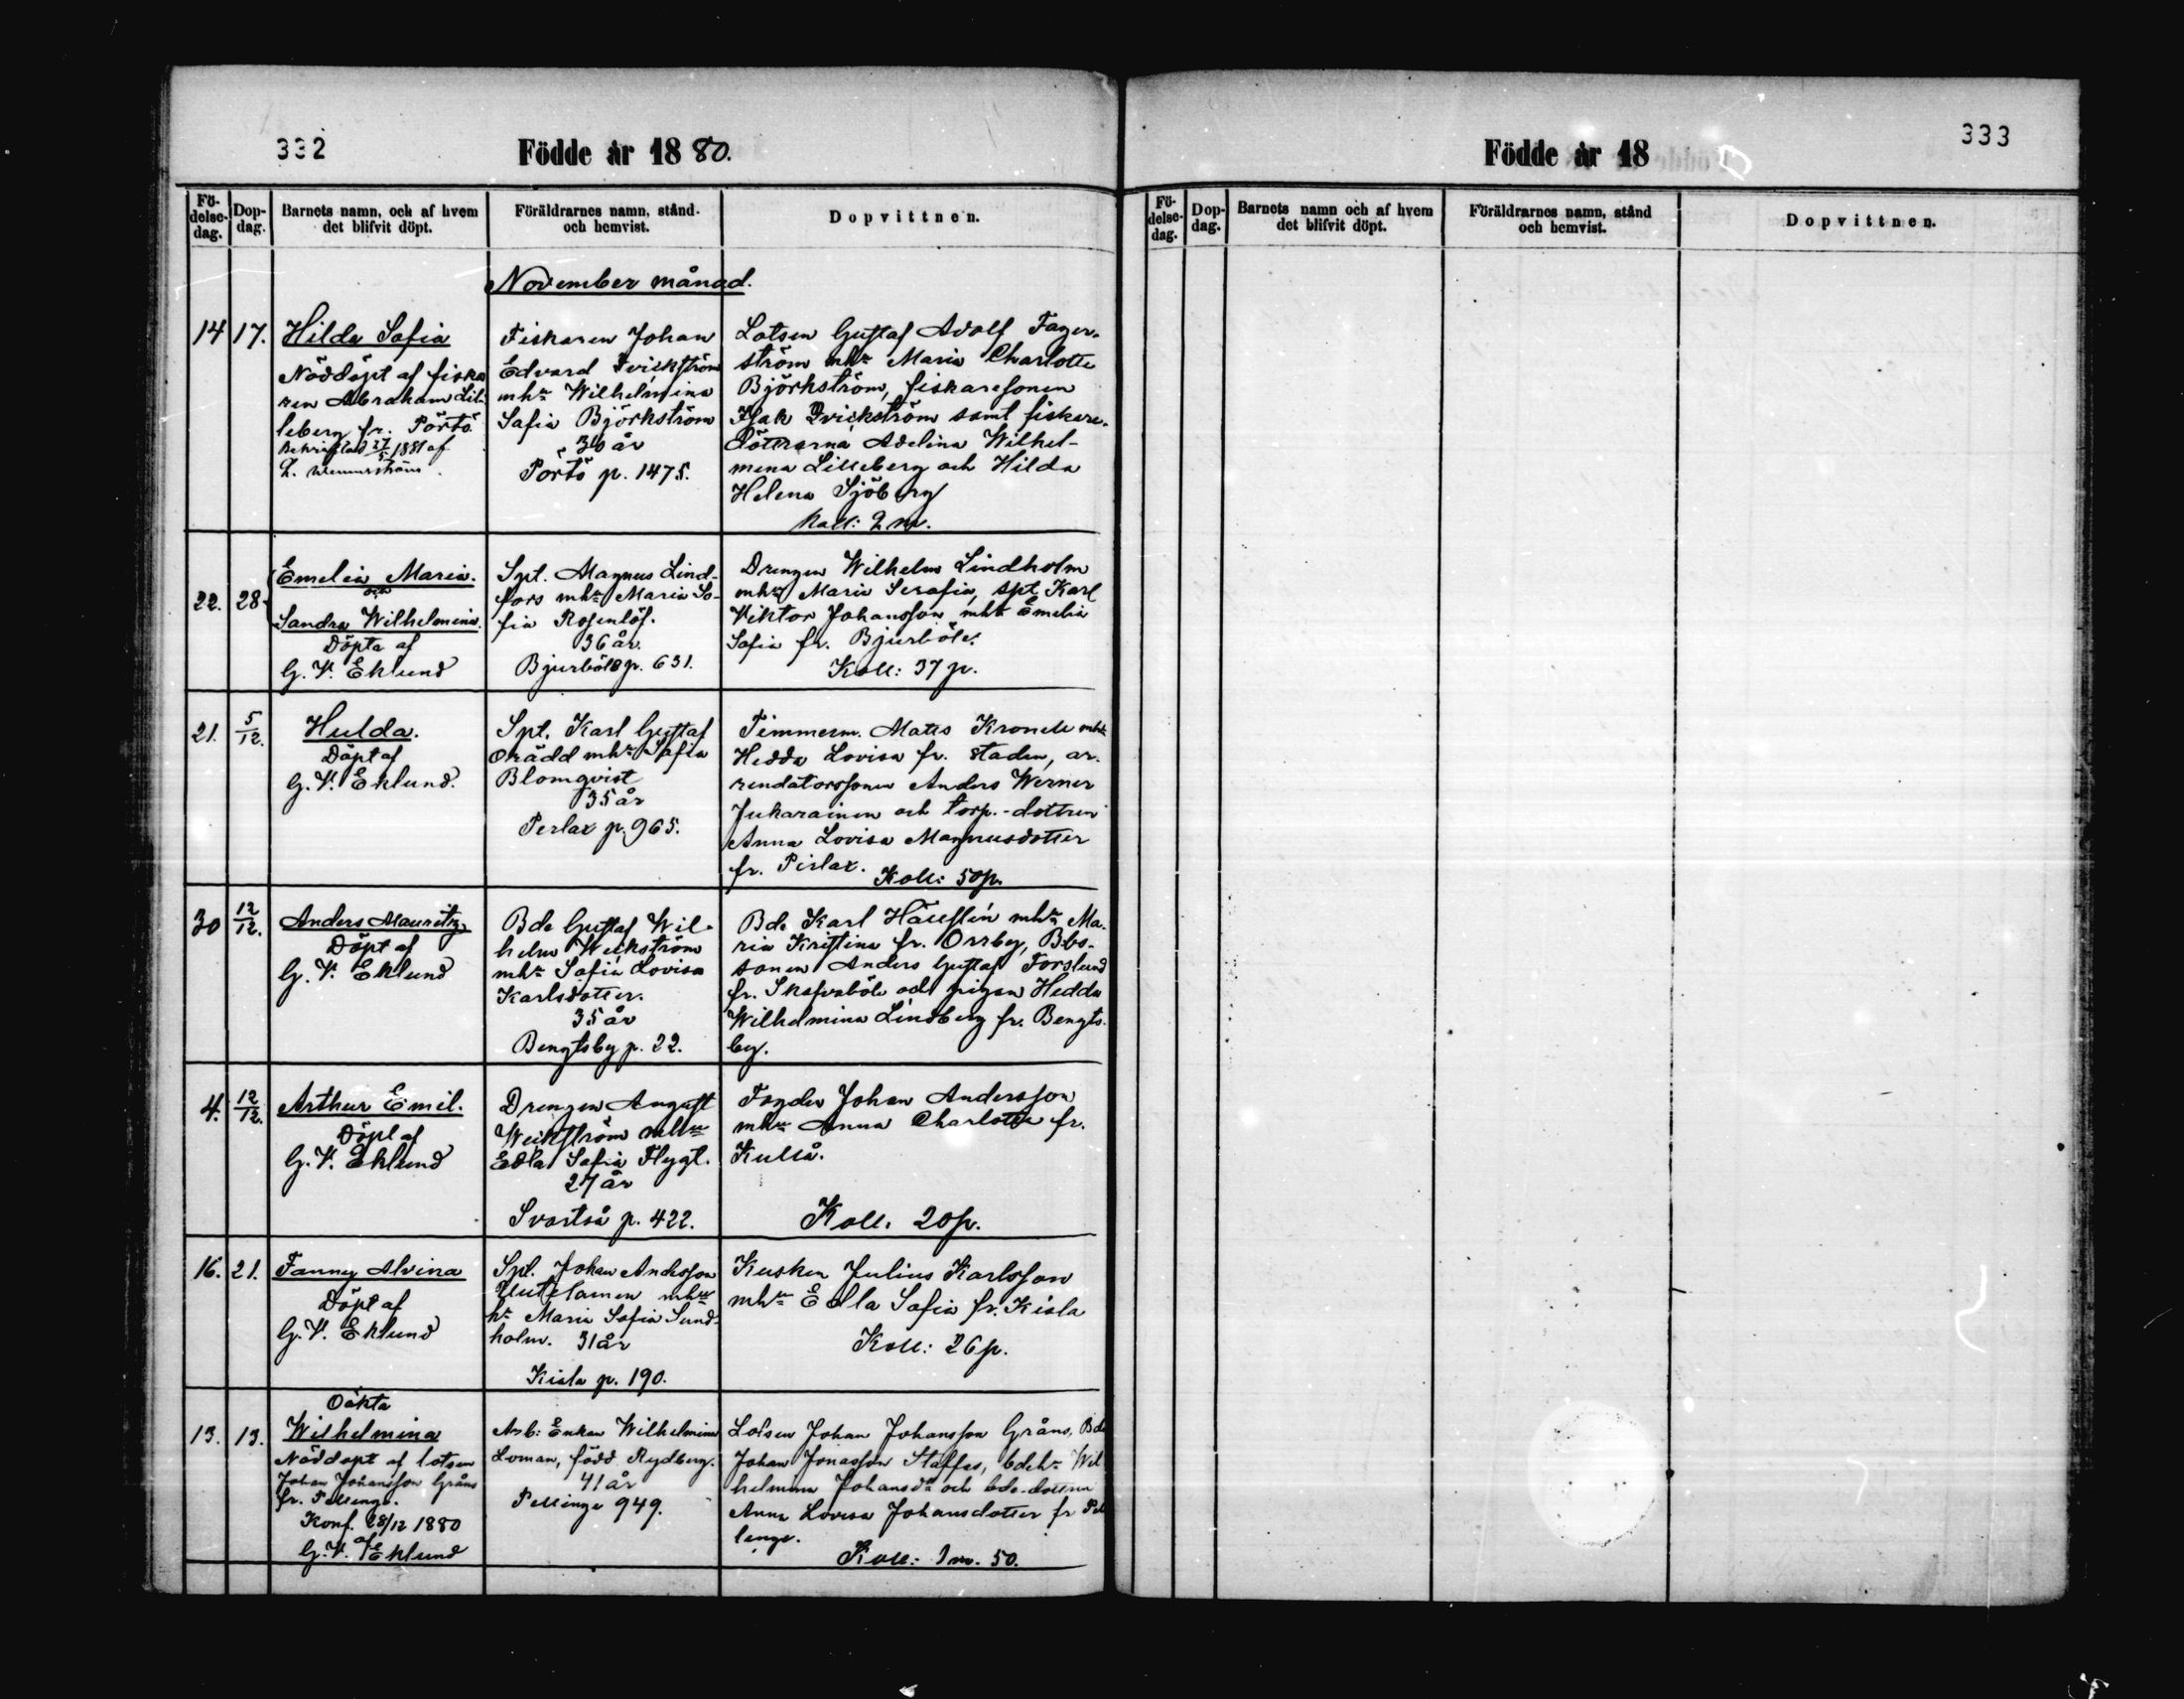 332
Födde år 1880.
Fö-
delse-
dag.
Dop-
dag.
Barnets namn, och af hvem
det blifvit döpt.
Föräldrarnes namn, stånd
och hemvist.
Dopvittnen.
November månad.
14
17.
Hilda Sofia
Nöddöpt af fiska
ren Abraham Lil-
leberg fr. Pörtö
1881 af
Fiskaren Johan
Edvard Qvickström
mhu Wilhelmina
Sofia Björkström
Pörtö p. 1475.
Lotsen Gustaf Adolf Fager-
ström mhu Maria Charlotte
Björkström, fiskaresonen
Isak Qvickström samt fiskare-
döttrarna Adelina Wilhel-
mina Lilleberg och Hilda
Helena Sjöberg
Koll: 2 m.
22.
28
Emelia Maria.
och
Sandra Wilhelmina.
Döpta af
G. V. Eklund
Spt. Magnus Lind-
fors mhu Maria So-
fia Rosenlöf.
36 år.
Bjurböle p. 631.
Drengen Wilhelm Lindholm
mhu Maria Serafia, Spt. Karl
Viktor Johansson mhu Emelia
Sofia fr. Bjurböle.
Koll: 37 p.
21.
5/12.
Hulda.
Döpt af
G. V. Eklund.
Spt. Karl Gustaf
Orädd mhu Sofia
Blomqvist
35 år
Perlax p. 965.
Timmerm. Mats Kronell mhu
Hedda Lovisa fr. staden, ar-
rendatorssonen Anders Werner
Jukarainen och torp.-dottren
Anna Lovisa Magnusdotter
fr. Pirlax.
Koll: 50 p.
30
12/12.
Anders Mauritz
Döpt af
G. V. Eklund
Bde Gustaf Wil-
helm Weckström
mhu Sofia Lovisa
Karlsdotter.
35 år
Bengtsby p. 22.
Bde Karl Hällsten mhu Ma-
ria Kristina fr. Orrby, Bbs-
sonen Anders Gustaf Forslund
fr. Skafvaböle och pigan Hedda
Wilhelmina Lindberg fr. Bengts-
by.
4.
12/12.
Arthur Emil.
Döpt af
G. V. Eklund
Drengen August
Weckström mhu
Edla Sofia Flygt.
27 år
Svartså p. 422.
Fogden Johan Andersson
mhu Anna Charlotta fr.
Kullå.
Koll. 20 p.
16.
21.
Fanny Alvina
Döpt af
G. V. Eklund
Spt. Johan Andersson
mhu
Maria Sofia Sund-
holm. 31 år
Kiala p. 190.
Kusken Julius Karlsson
mhu Edla Sofia fr. Kiala
Koll: 26 p.
13.
13.
Oäkta
Wilhelmina
Nöddöpt af lotsen
Johan Johansson Gråns
fr. Pellinge.
Konf. 28/12 1880
af
G. V. Eklund
Arb: Enkan Wilhelmina
Loman, född Rydberg.
41 år
Pellinge 949.
Lotsen Johan Johansson Gråns, Bde
Johan Jonasson Staffas, bdehu Wil
helmina Johansdr och bde-dottern
Anna Lovisa Johansdotter fr Pel
linge.
Koll: 1 m. 50.
333
Födde år 18
Fö-
delse-
dag.
Dop-
dag.
Barnets namn och af hvem
det blifvit döpt.
Föräldrarnes namn, stånd
och hemvist.
Dopvittnen.